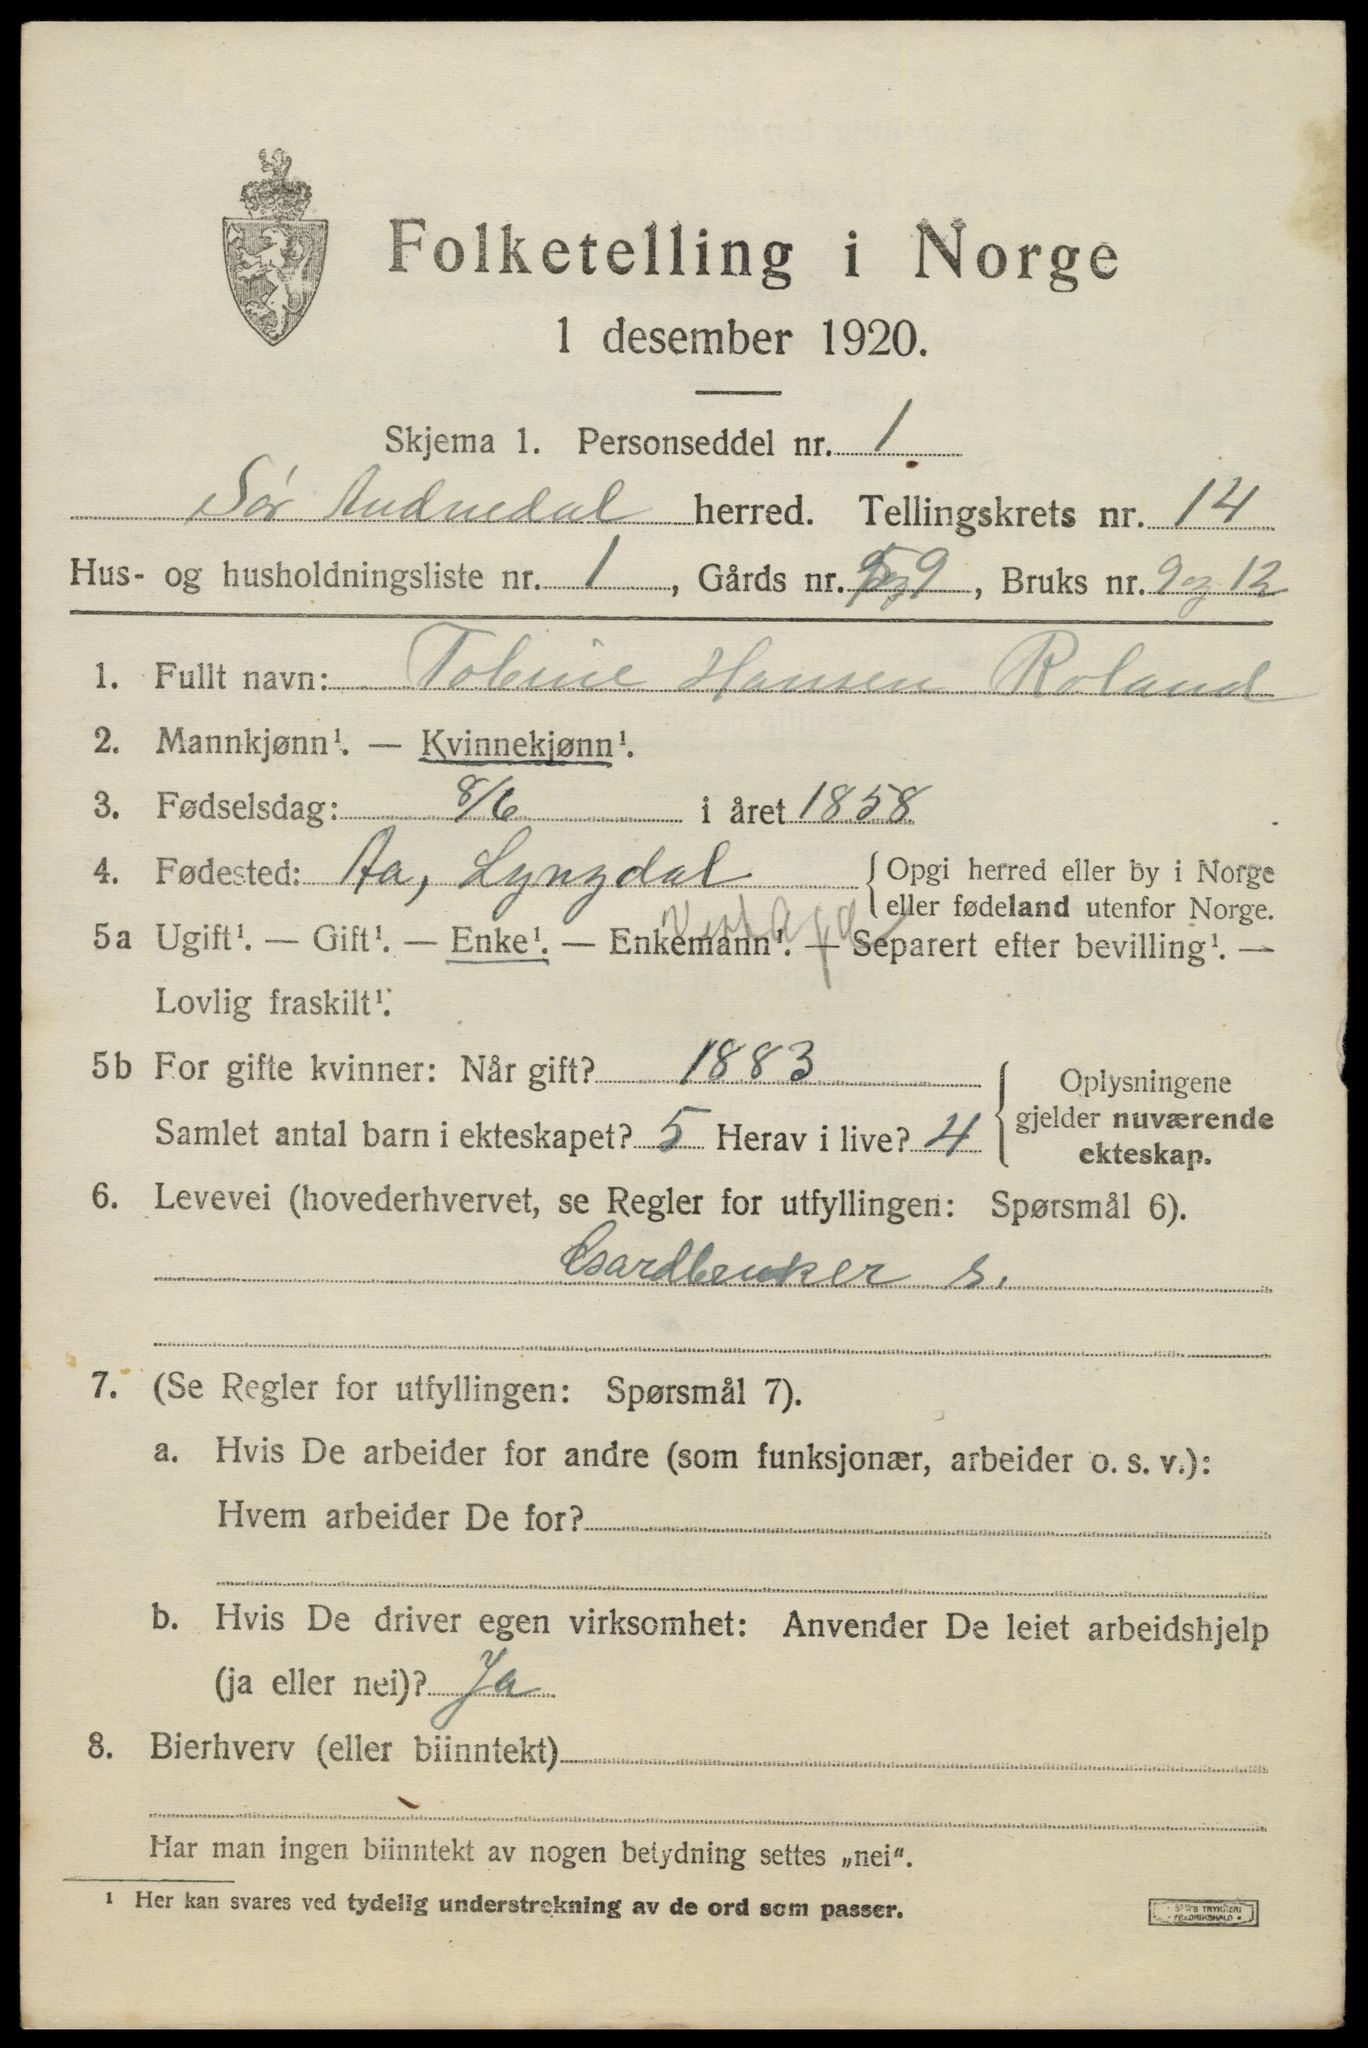 Folketelling i Norge
1 desember 1920.
Skjema 1. Personseddel nr. 1
Sør Audnedal herred. Tellingskrets nr. 14
Hus- og husholdningsliste nr. 1, Gårds nr. 9, Bruks nr. 9 og 12
1. Fullt navn: Tobine Hansen Roland
2. Mannkjønn¹. — Kvinnekjønn¹.
3. Fødselsdag: 8/6 i året 1858
4. Fødested: Aa, Lyngdal { Opgi herred eller by i Norge
eller fødeland utenfor Norge.
5a Ugift¹. — Gift¹. — Enke¹. — Enkemann¹. — Separert efter bevilling¹. —
Lovlig fraskilt¹.
5b For gifte kvinner: Når gift? 1883
Samlet antal barn i ekteskapet? 5 Herav i live? 4
{ Oplysningene
gjelder nuværende
ekteskap.
6. Levevei (hovederhvervet, se Regler for utfyllingen: Spørsmål 6).
Gardbruker s.
7. (Se Regler for utfyllingen: Spørsmål 7).
a. Hvis De arbeider for andre (som funksjonær, arbeider o. s. v.):
Hvem arbeider De for?
b. Hvis De driver egen virksomhet: Anvender De leiet arbeidshjelp
(ja eller nei)? Ja
8. Bierhverv (eller biinntekt)
Har man ingen biinntekt av nogen betydning settes „nei“.
¹ Her kan svares ved tydelig understrekning av de ord som passer.
TRYKKERI
FREDRIKSHALD